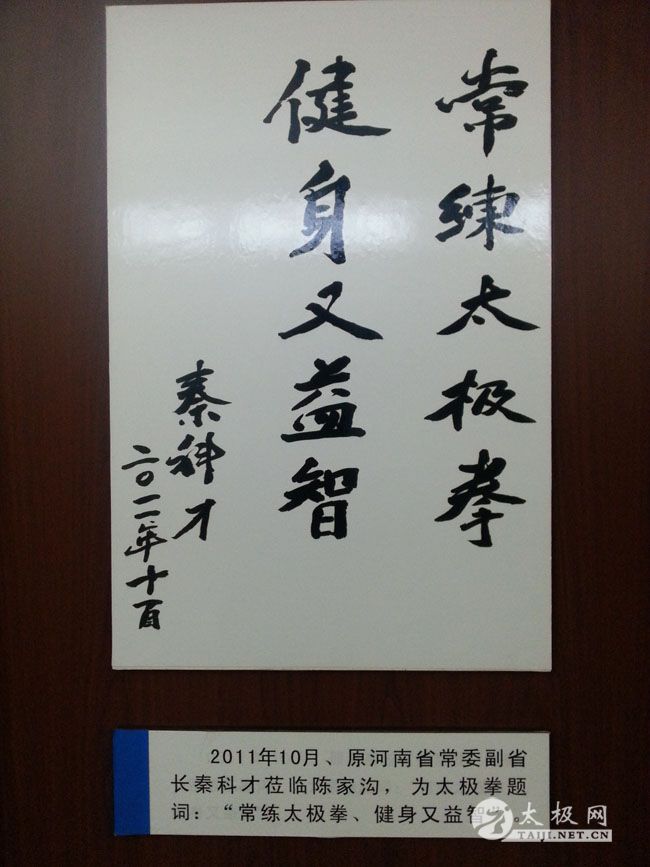 常练太极拳
健身又益智
秦科才
二〇一一年十月
2011年10月、原河南省常委副省
长秦科才莅临陈家沟，为太极拳题
词：“常练太极拳、健身又益智”。
太极网
TAIJI.NET.CN